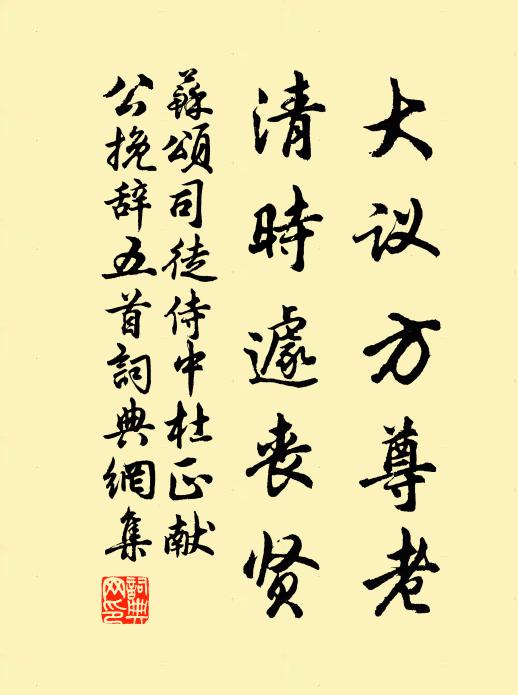 大议方尊老
清時遽丧贤
蘇頌司徒侍中杜正献
公挽辞五首詞典網集
詞典网印